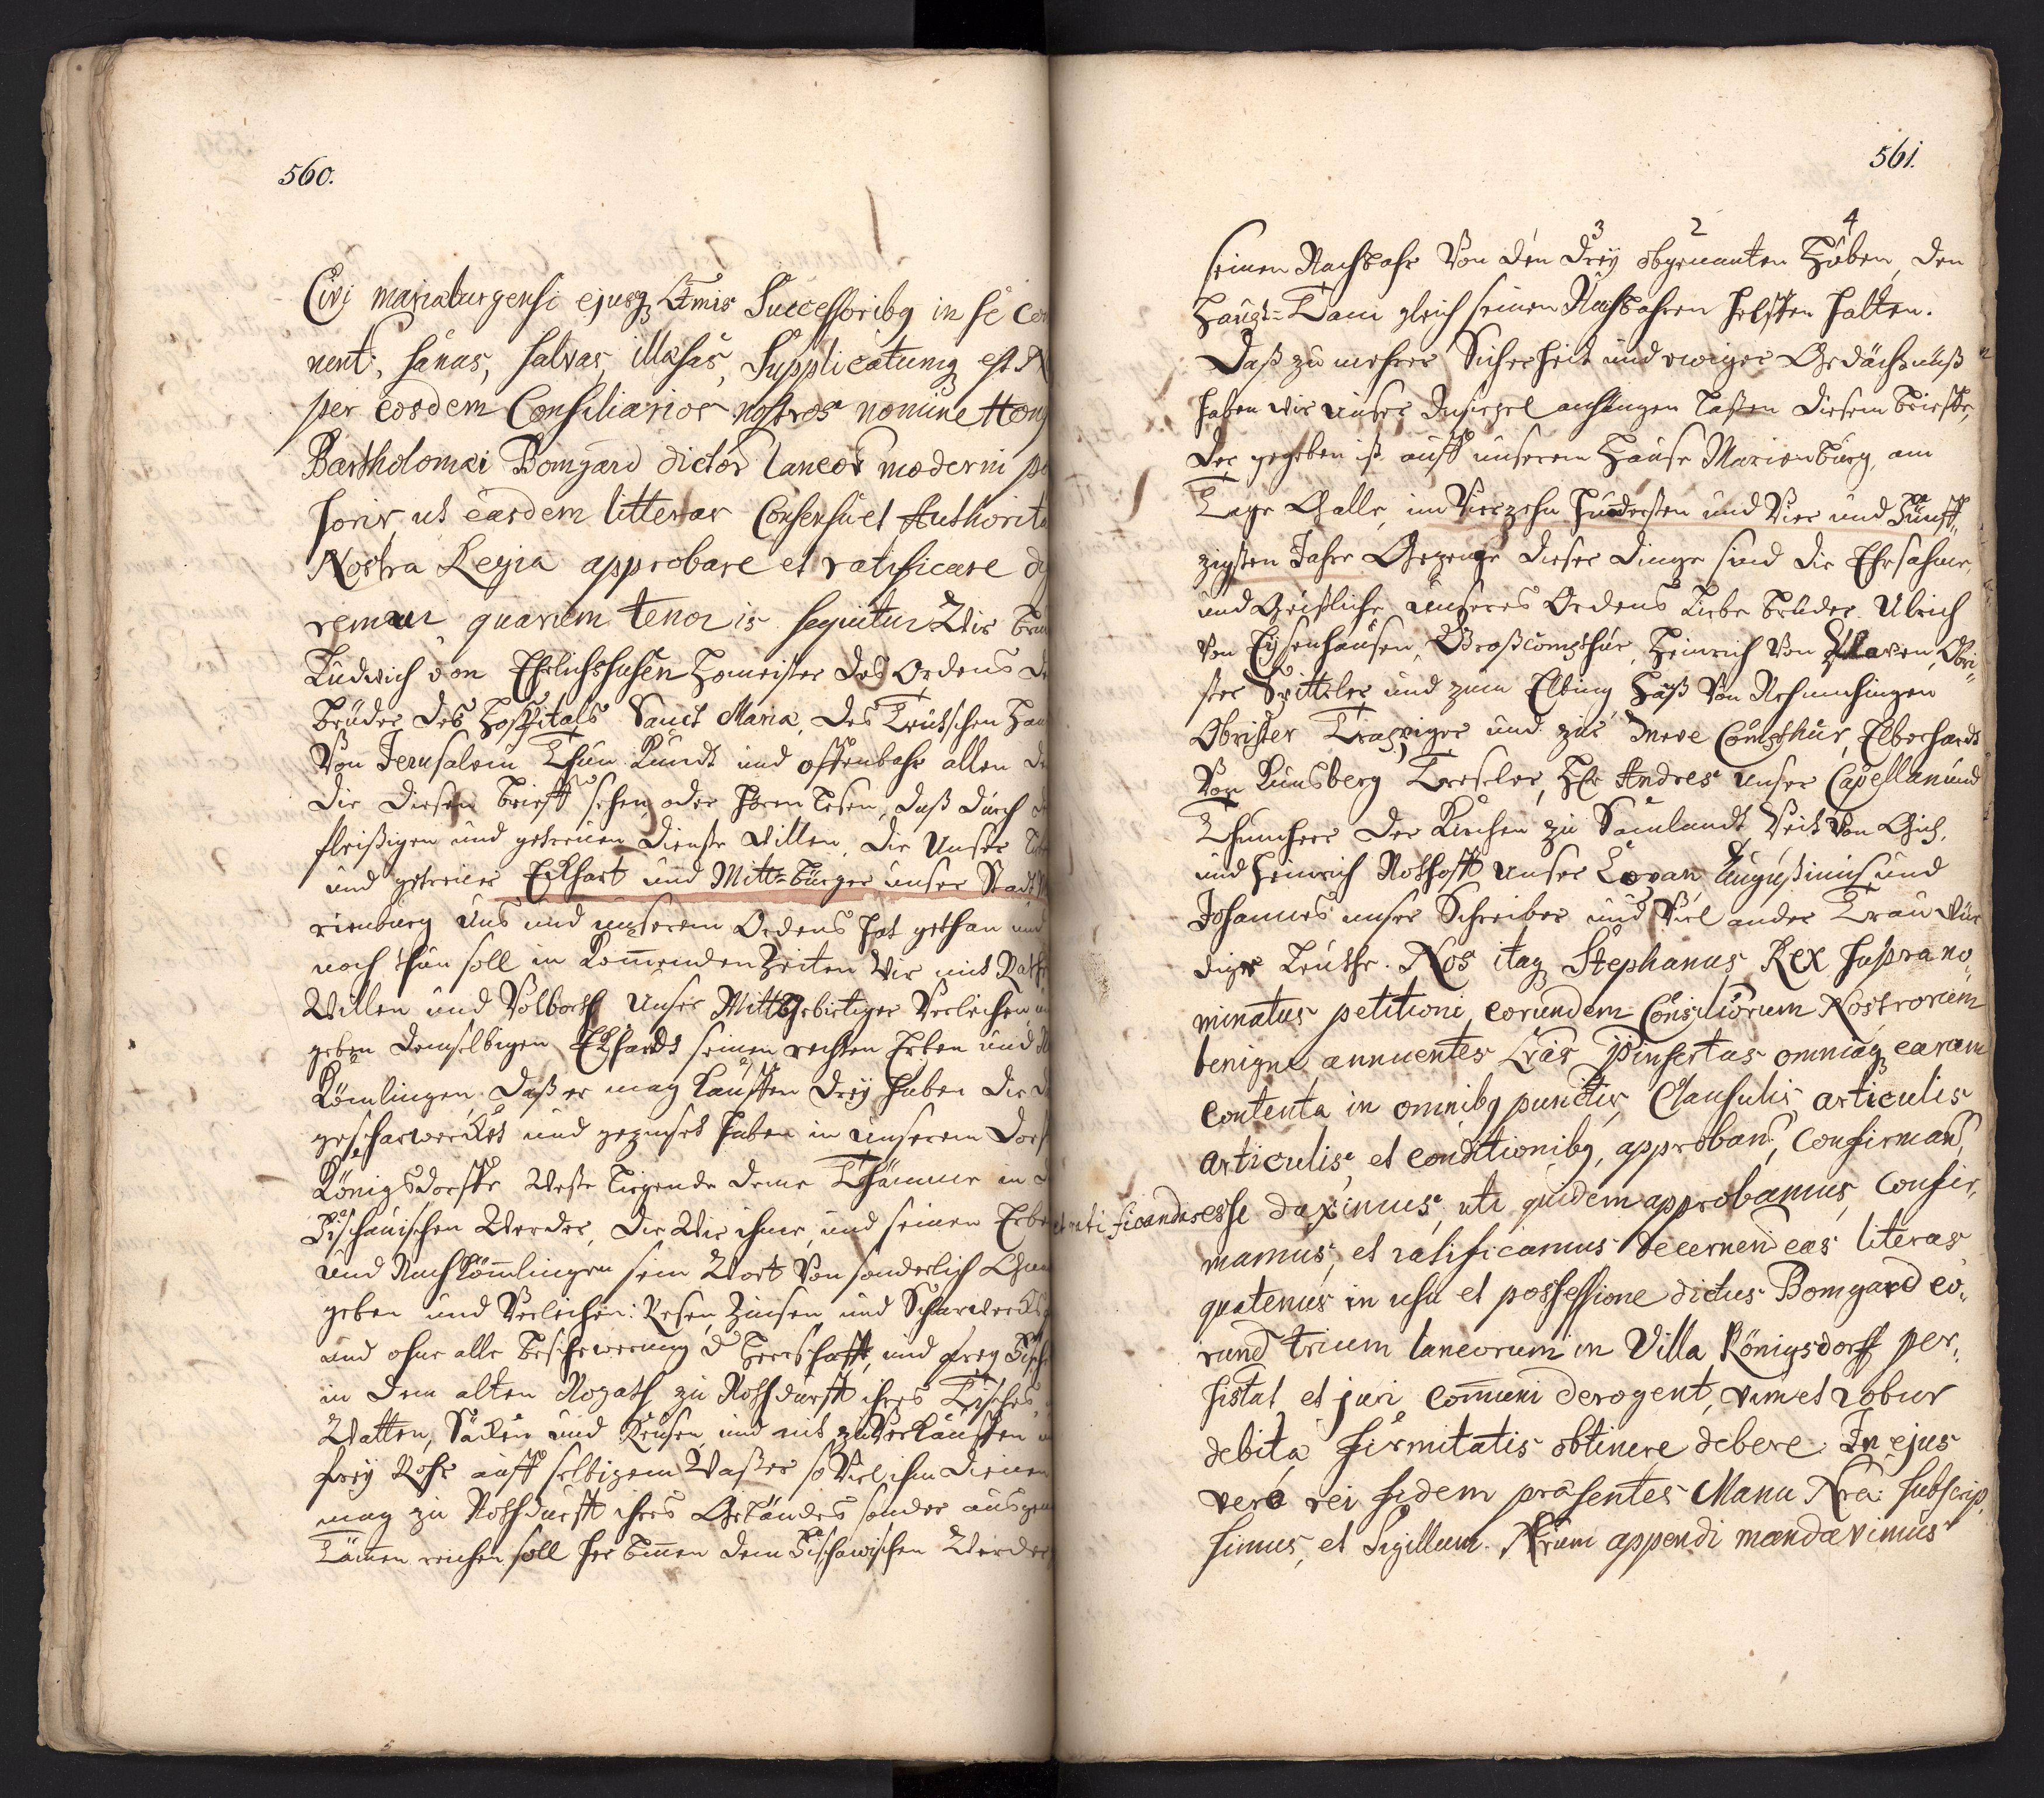 560.
Civi mariaburgensi ejusq; Ltmis Successoribq in se con
nent, sanas, salvas, illæsas, Supplicatumq; est N
per eosdem Consiliarios nostros nomine Hon
Bartholomæi Bomgard dictor laneor moderni po
soris, ut easdem litteras Consensu et Authorita
Nostra Regia approbare et ratificare dig
remur quarum tenor is sequitur Wir Bru
Ludwich von Ehrlichshusen Homeister des Ordens de
Brüder des Hospitals Sanct Maria, des Teütschen Hau
Von Jerusalem Thun Kundt und offenbahr allen de
die diesen brieff sehen, oder hören lesen, daß durch
fleißigen und getreuen dienste willen, die Unser lie
und getreuer Eckhart und Mitt-bürger unser Stadt M
rienburg uns und unserem Ordens hat gethan und
noch thun soll in kom̄enden Zeiten Wir mit Rath
Willen und Volbort Unser Mittgebietiger Verleihen u
geben demselbigen Eckhardt seinen rechten Erben und N
Kömlingen, daß er mag kauffen drey huben die d
gescharwerckt und gezinset haben in unserem dorf
Königsdorffe Weste liegende deme Thamme in d
Fischauischen Werder, die Wir ihme, und seinen Erbe
und Nachkömlingen sein Wort Von sonderlich Gna
geben und Verleihen: Resen, Zinsen und Scharwercks
und ohne alle beschwerung d Herrschafft, und frey Fisch
in dem alten Nogath zu Nothdurfft ihres Tisches,
Watten, Säcken und Reusen, und nit zu Verkauffen
frey Rohr auff selbigem Waßer so Viel ihm dienen
mag zu Nothdurfft ihres Gebäudes sonder ausgen
Tämen reichen soll her binnen dem Fischawischen Werder,
561.
3 2 4
seinen Nachbahr Von den drey obgenanten Huben, den
Haupt-Tam gleich seinen Nachbahren helffen halten.
Daß zu mehrer Sicherheit und ewiger Gedächtnüß
haben wir unser Insiegel anhängen laßen diesem brieffe,
der gegeben ist auff unserem Hause Marienburg, am
Tage Galle, im Vierzehn hundersten und Vier und Fünff-
zigsten Jahre Gezeuge dieser dinge sind die Ehrsahme,
und Geistliche unseres Ordens liebe brüder Ulrich
Von Eysenhausen, Großcomthur, Heinrich Von Plawen, Obri-
ster Spittler und zum Elbing, Haß Von Rehmchingen
Obrister Trappiger und zur Mewe Comthur, Elberhardt
Von Kunsberg Treseler, Hr Andres unser Capellan und
Thumherr der Kirchen zu Samlandt, Veit Von Gich,
und Heinrich Nothofft unser Covan, Augustinus und
Johannes unser Schreiber und Viel ander Trau wür
diger leuthe. Nos itaq; Stephanus Rex supra no-
minatus petitioni eorundem Consiliorum Nostrorum
benigne annuentes Lras pinsertas omniaq; earum
contenta in omnibq punctis, Clausulis articulis
articulis, et conditionibq, approbans, confirmans,
et ratificandas esse duximus, uti quidem approbamus, confir-
mamus, et ratificamus decernen eas literas
quatenus in usu et possessione dictus Bomgard eo-
rund trium laneorum in Villa Königsdorff per-
sistat, et juri com̄uni derogent, vim et robur
debita firmitatis obtinere debere. In ejus
vero rei fidem præsentes Manu Nra: subscrip-
simus, et Sigillum Nrum appendi mandavimus